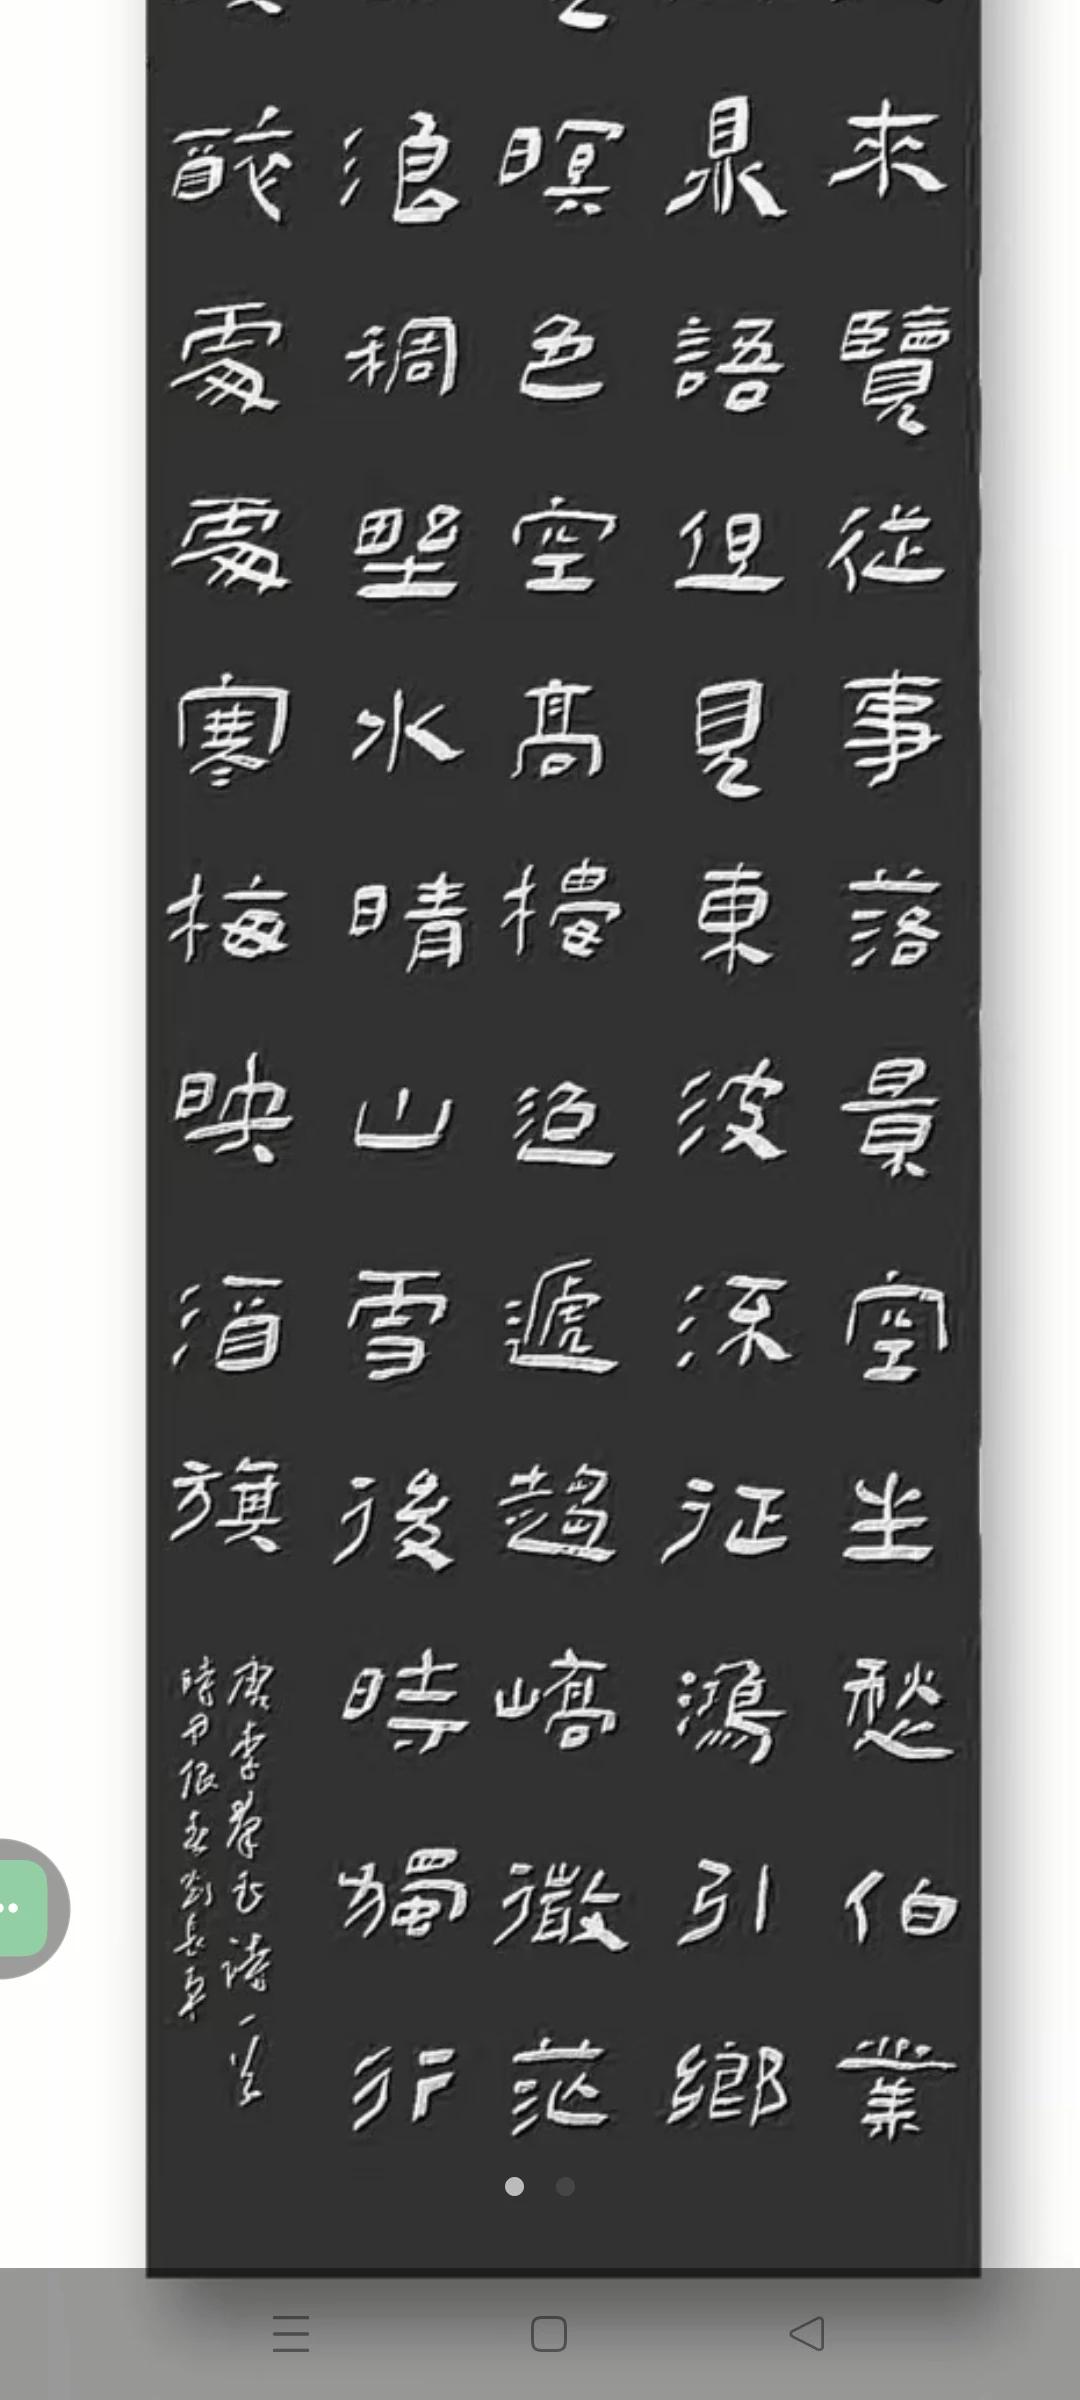 來覽從事落景空坐愁伯業
鼎語但見東波流征鴻引鄉
暝色空高樓迢遞趨嶠微茫
浪稠野水晴山雪後時獨行
醉處處寒梅映酒旗
唐李群玉詩一首
時甲辰春劉長